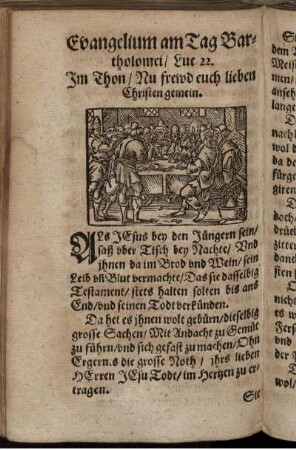 Evangelium am Tag Bar-
tholomei/ Luc 22.
Im Thon/ Nu frewd euch lieben
Christen gemein.
ALs JEsus bey den Jüngern sein/
saß vber Tisch bey Nachte/ Vnd
jhnen da im Brod vnd Wein/ sein
Leib vñ Blut vermachte/ Das sie dasselbig
Testament/ stets halten solten bis ans
End/ vnd seinen Todt verkünden.
Da het es jhnen wolt gebürn/ dieselbig
grosse Sachen/ Mit Andacht zu Gemüt
zu führn/ vnd sich gefast zu machen/ Ohn
Ergern.s die grosse Noth/ jhrs lieben
HErren JEsu Todt/ im Hertzen zu er-
tragen.
Sie